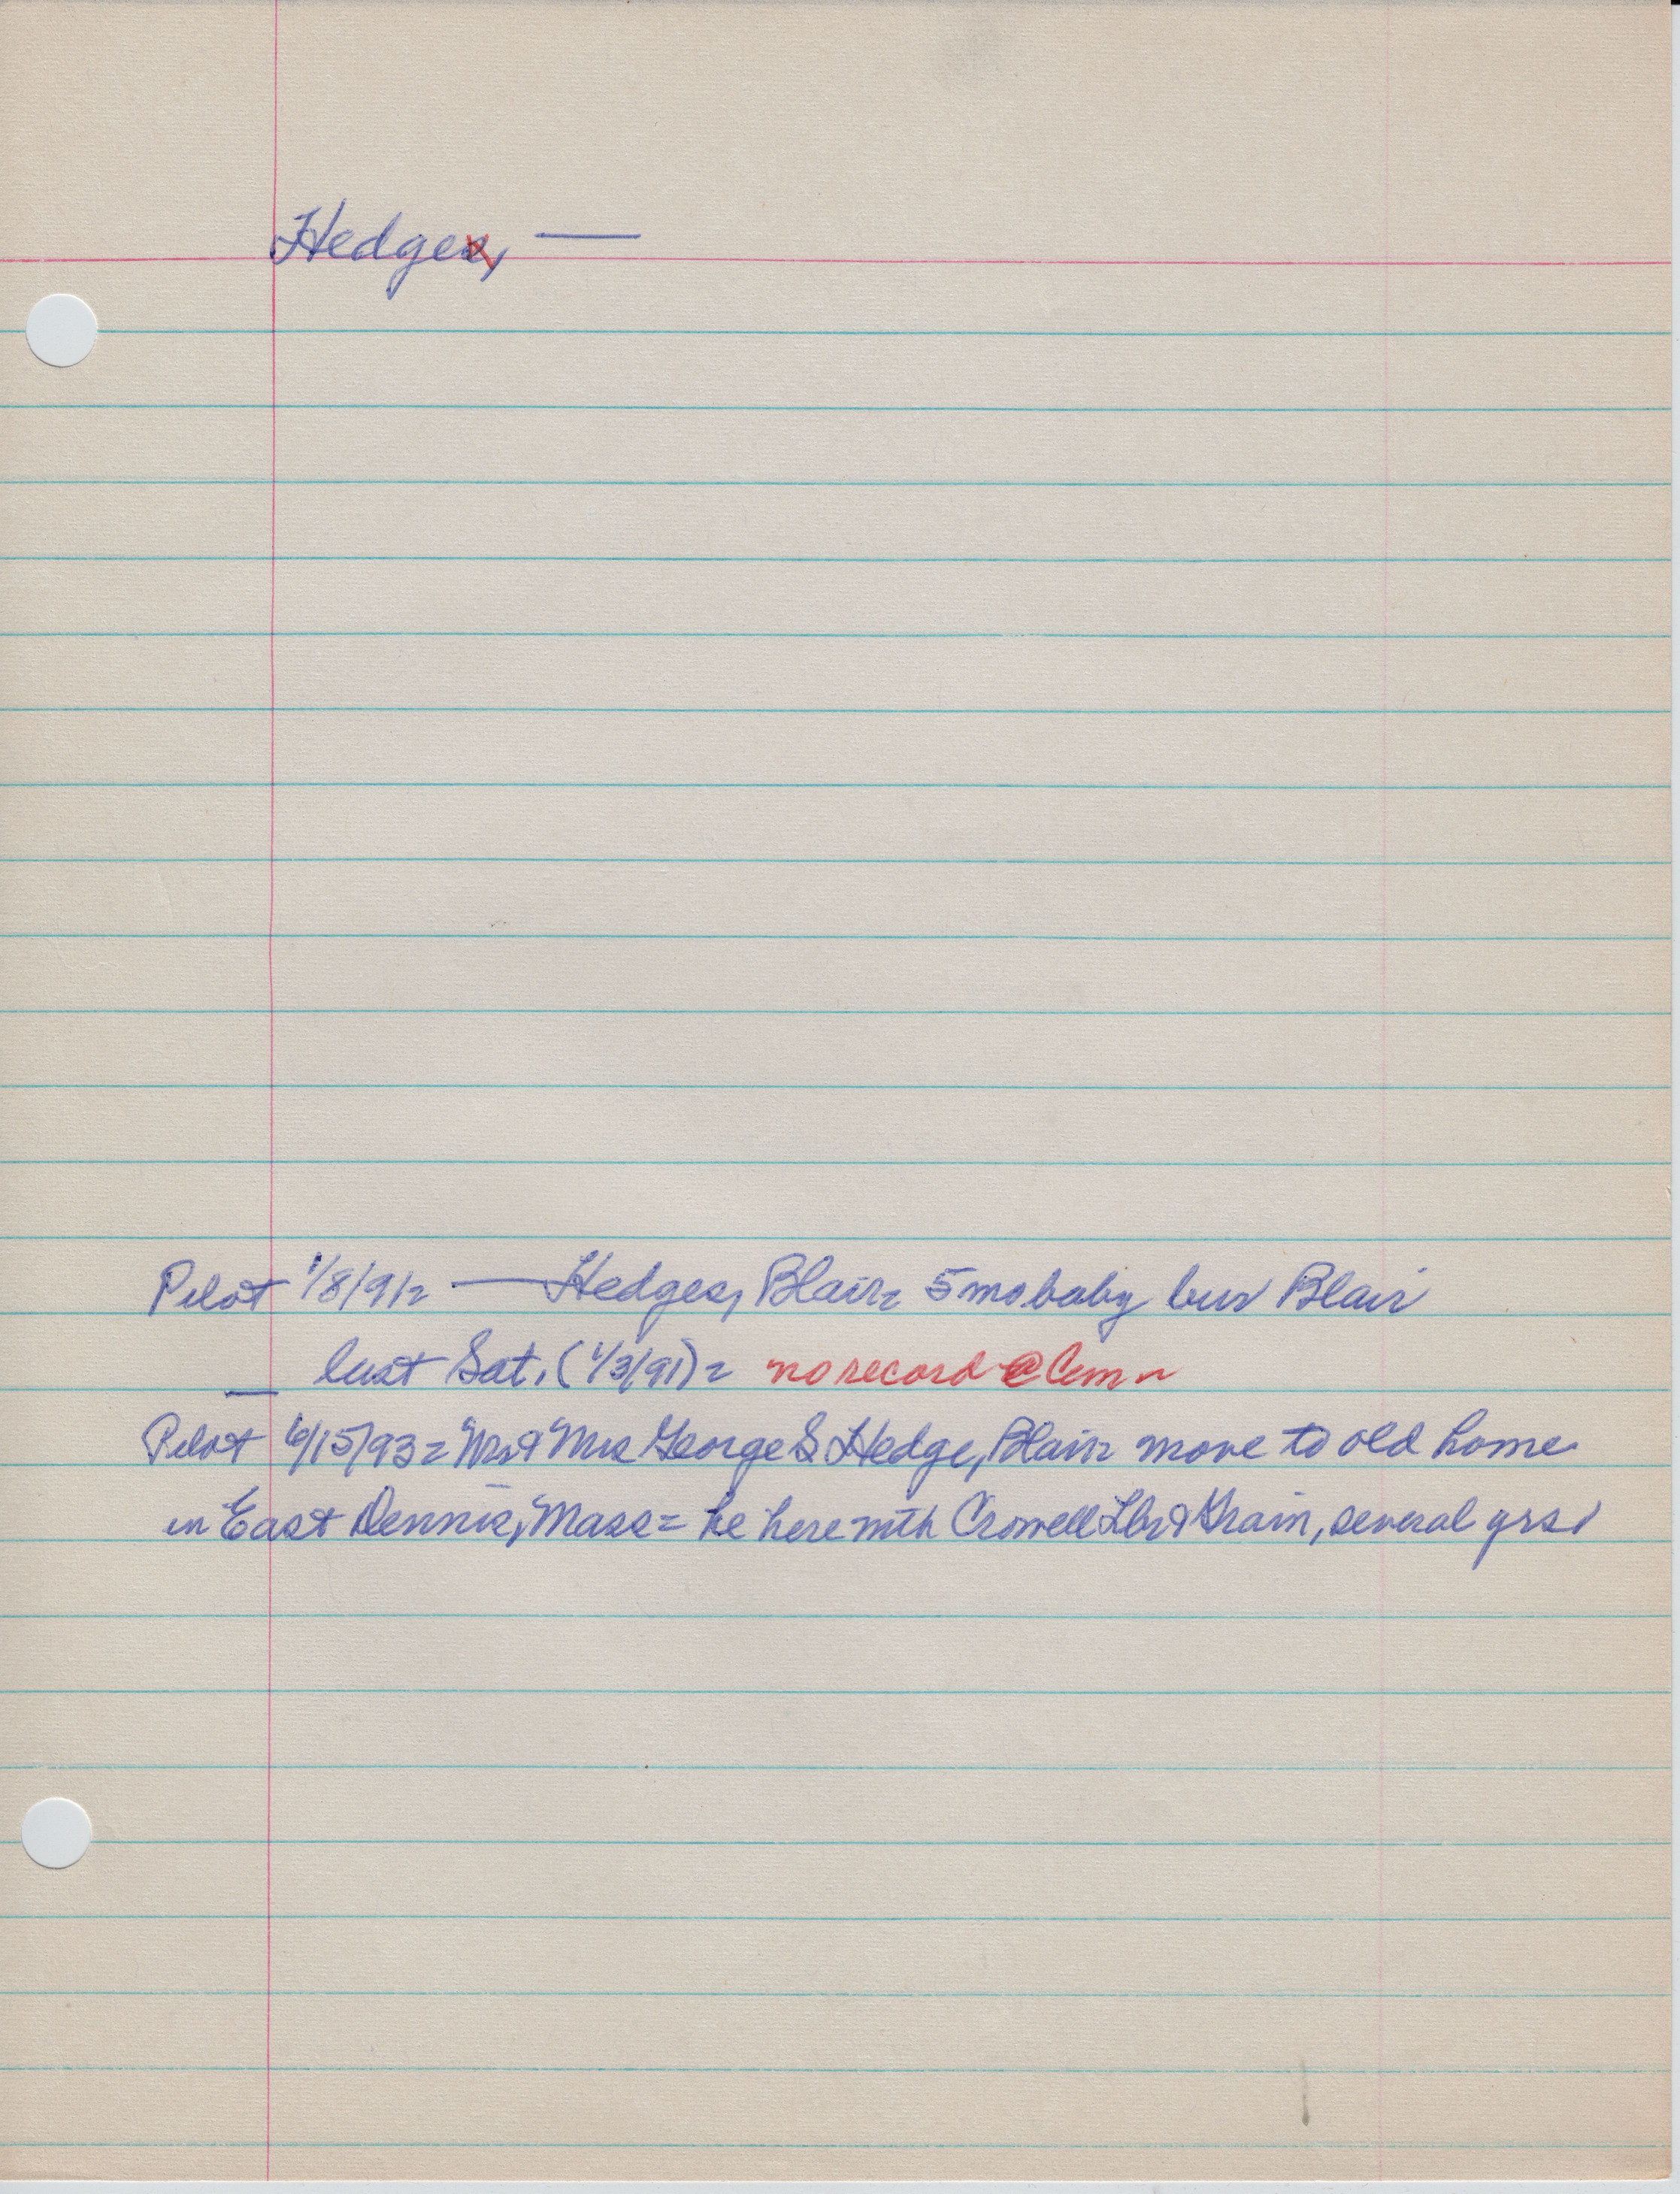 Hedges, —
Pilot 1/8/91= — Hedges, Blair= 5 mo baby bur Blair
last Sat. (1/3/91)= no record @ Cem~
Pilot 6/15/93= Mr & Mrs George S Hedge, Blair= move to old home
in East Dennis, Mass= he here with Crowell Lbr & Grain, several yrs.